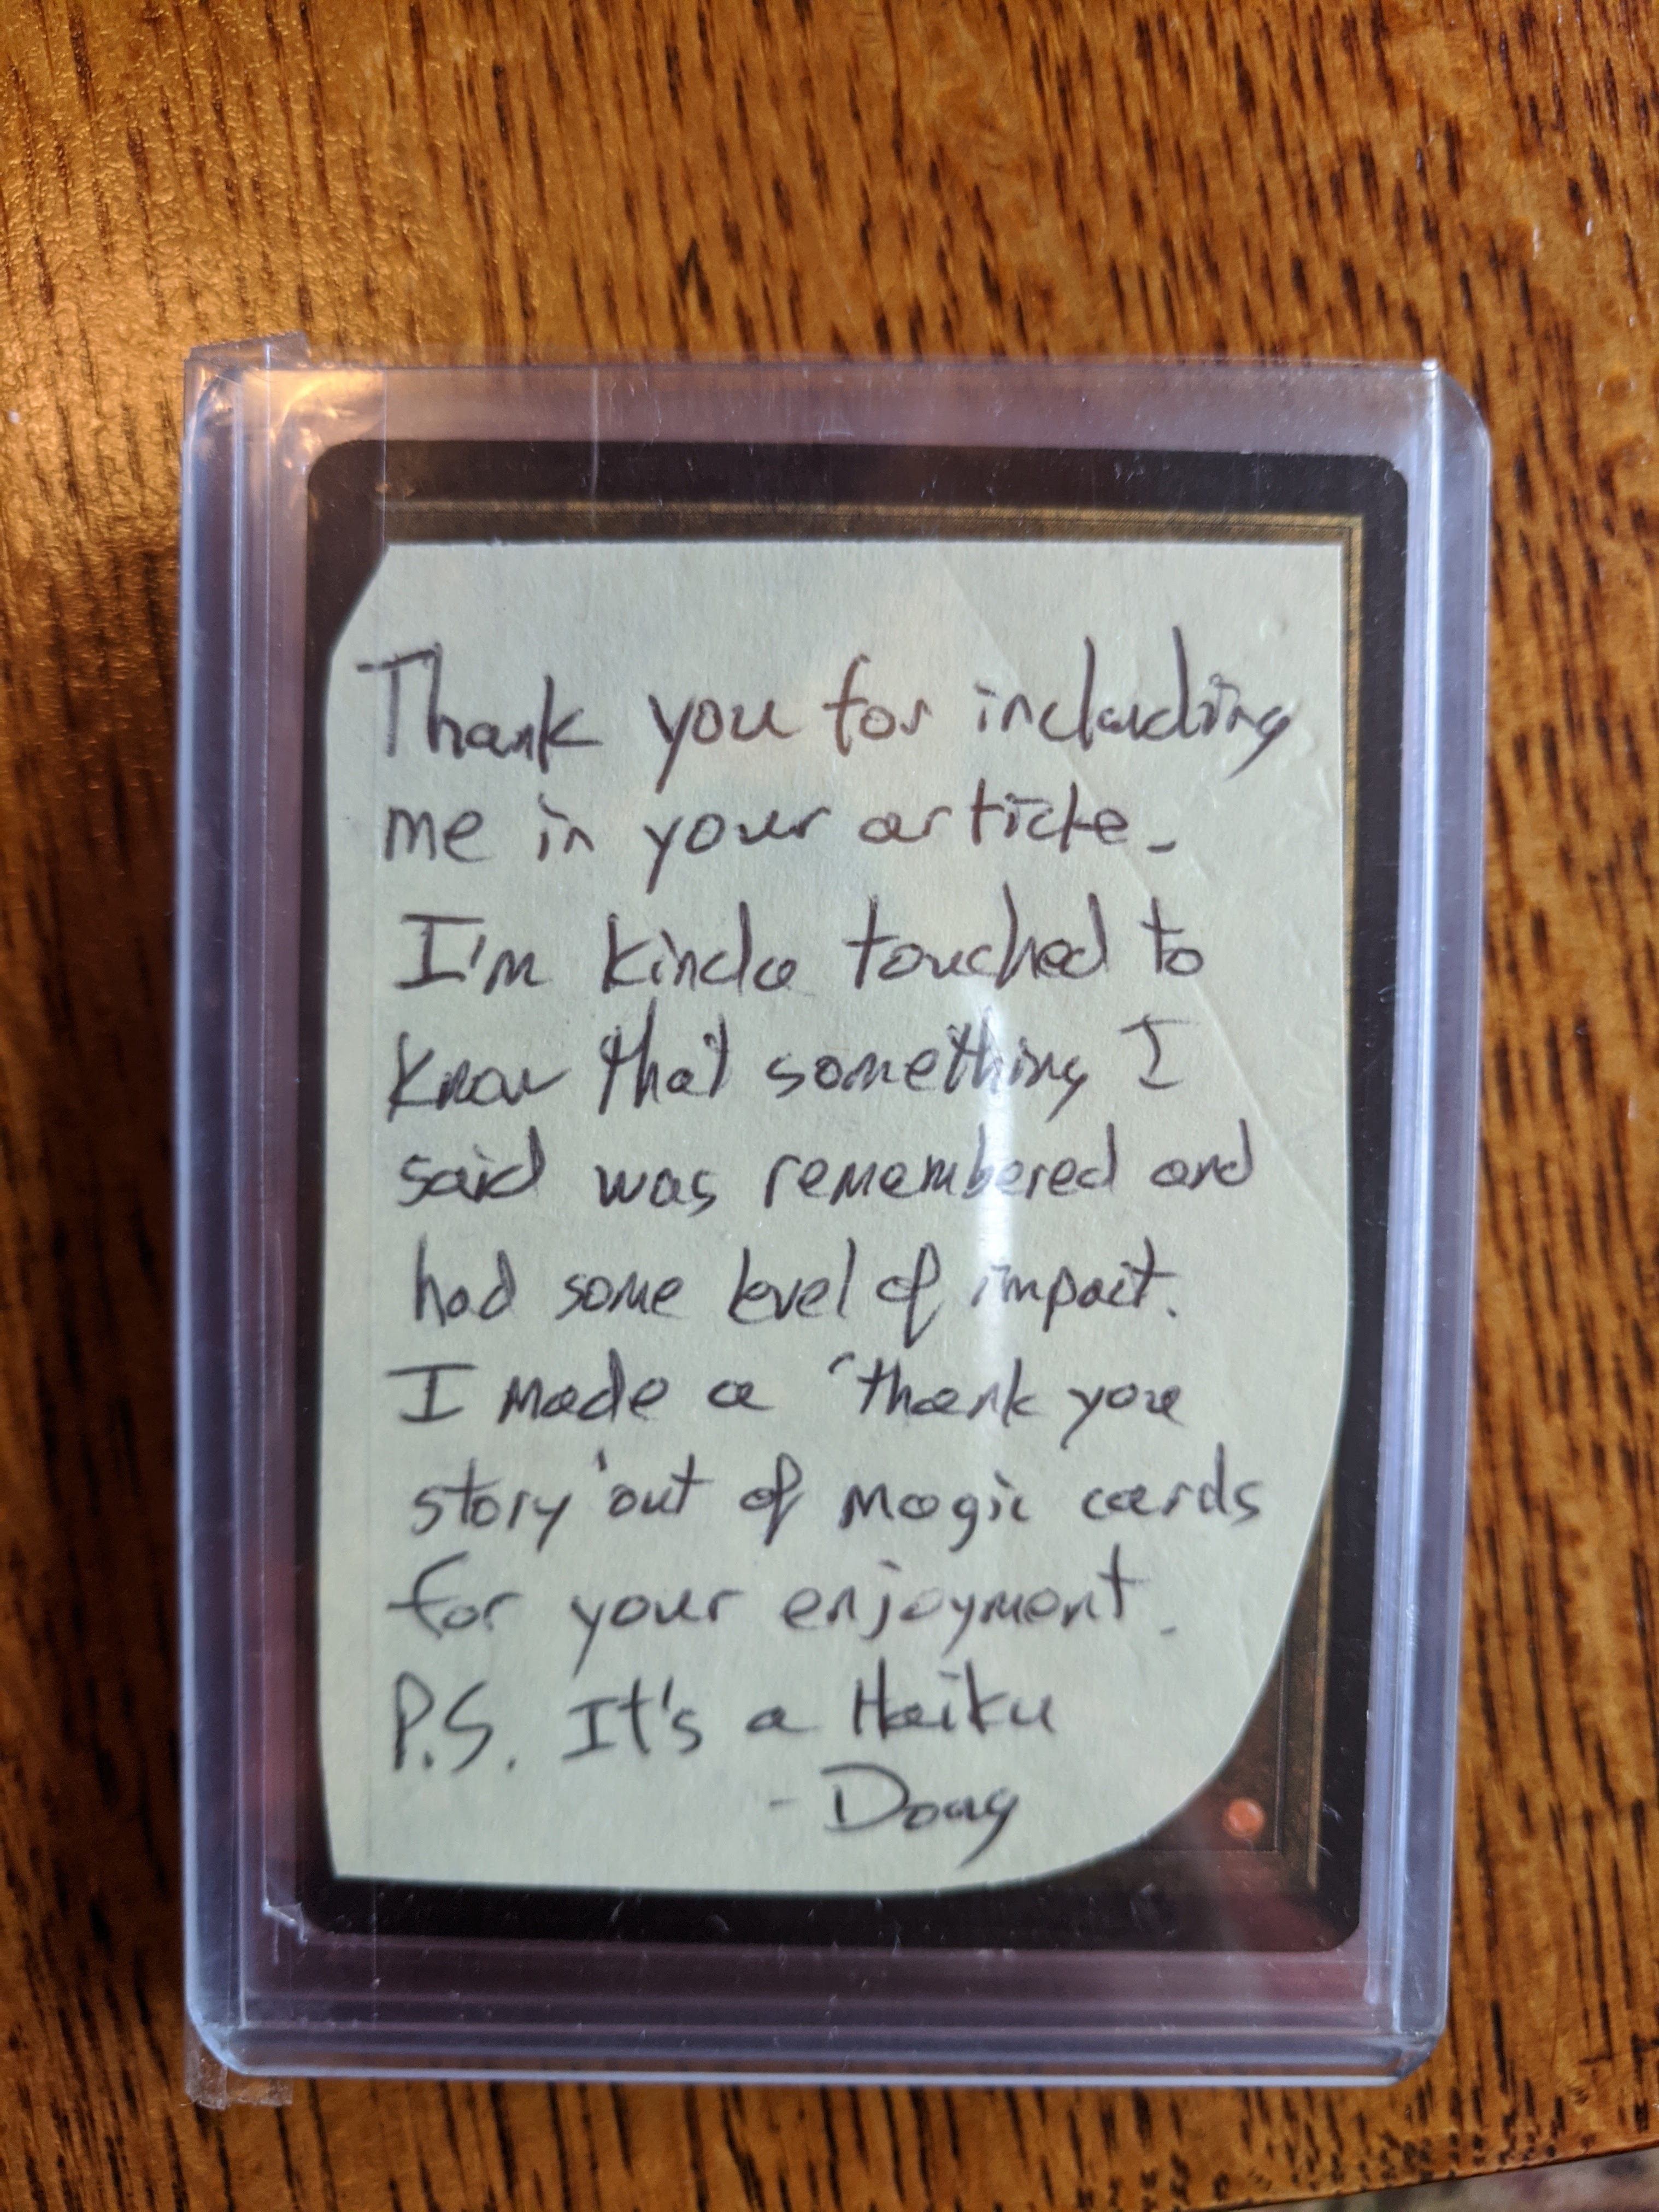 Thank you for including
me in your article.
I'm kinda touched to
know that something I
said was remembered and
had some level of impact.
I made a "thank you
story" out of magic cards
for your enjoyment.
P.S. It's a Haiku
- Doug